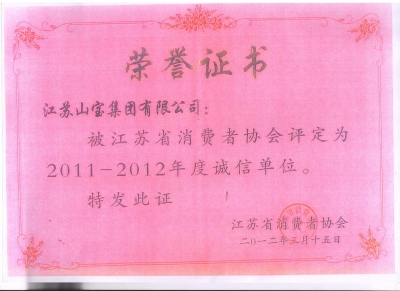 荣誉证书
江苏山宝集团有限公司：
被江苏省消费者协会评定为
2011-2012年度诚信单位。
特发此证
江苏省消费者协会
二〇一二年三月十五日